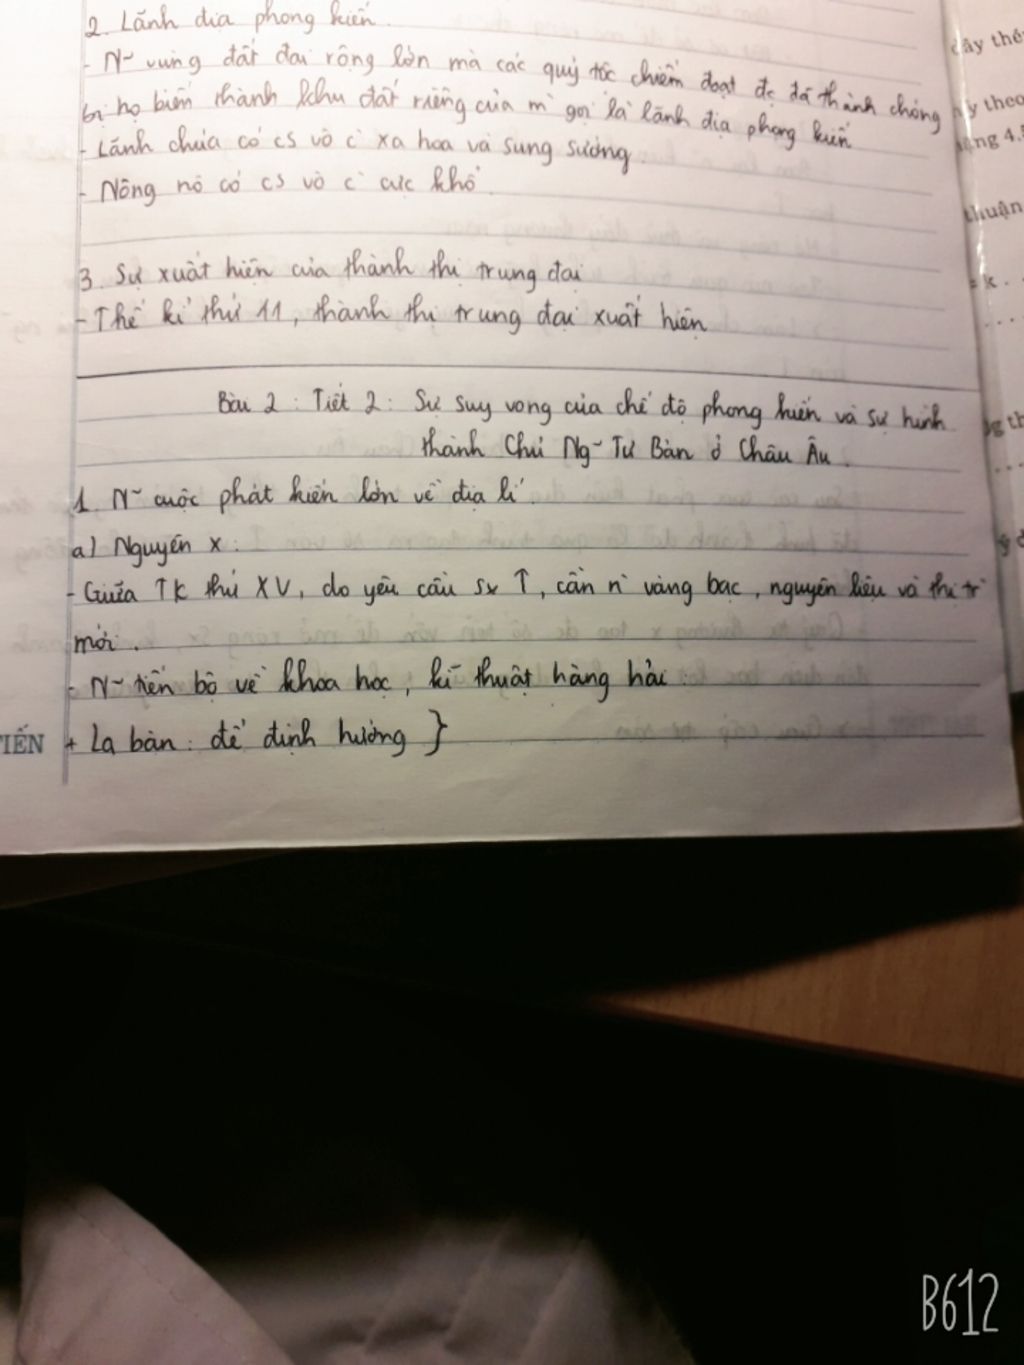 2. Lãnh địa phong kiến.
- N~ vùng đất đai rộng lớn mà các quý tộc chiếm đoạt đc đã thành chóng
bị họ biến thành khu đất riêng của m` gọi là lãnh địa phong kiến
- Lãnh chúa có cs vô c` xa hoa và sung sướng
- Nông nô có cs vô c` cực khổ.
3. Sự xuất hiện của thành thị trung đại
- Thế kỉ thứ 11, thành thị trung đại xuất hiện
Bài 2 : Tiết 2 : Sự suy vong của chế độ phong kiến và sự hình
thành Chủ Ng~ Tư Bản ở Châu Âu.
1. N~ cuộc phát kiến lớn về địa lí.
a) Nguyên x :
- Giữa TK thứ XV, do yêu cầu sx ↑, cần n` vàng bạc, nguyên liệu và thị tr`
mới.
- N~ tiến bộ về khoa học, kĩ thuật hàng hải :
+ La bàn : để định hướng }
IẾN
dây thé
y theo
ộng 4.5
thuận
k .
B612